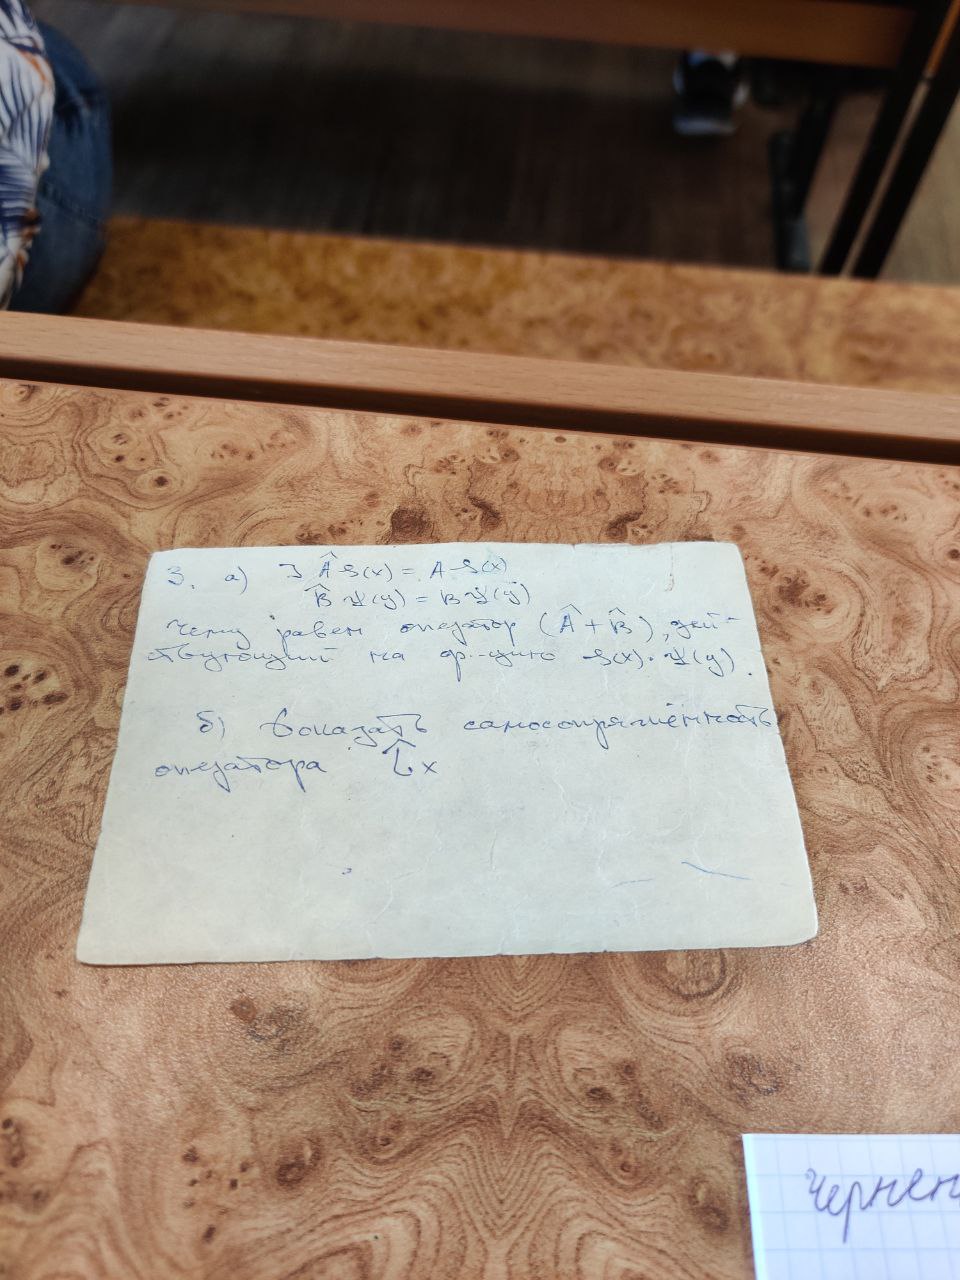 3. а) ∃ Â φ(x) = A φ(x)
B̂ Ψ(y) = B Ψ(y)
Чему равен оператор (Â + B̂), дей-
ствующий на ф-цию φ(x)·Ψ(y).
б) Доказать самосопряжённость
оператора L̂x
Чернен